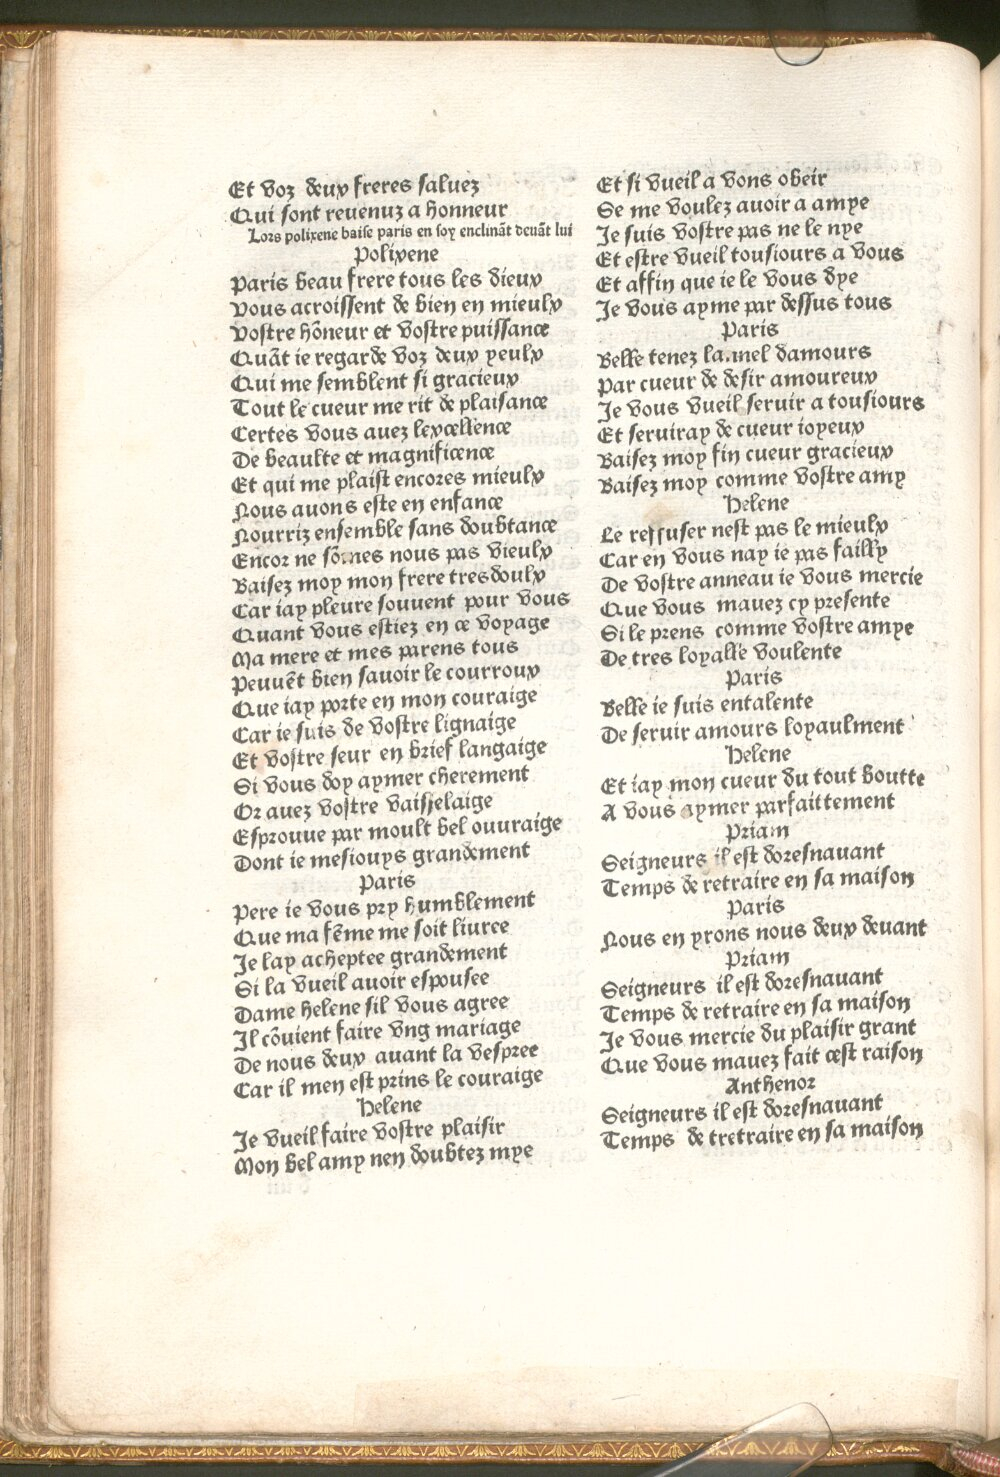 Et voz deux freres saluez
Qui sont reuenuz a honneur
Lors polixene baise paris en soy enclinãt deuãt lui
Polixene
Paris beau frere tous les dieux
Vous acroissent de bien en mieulx
Vostre hõneur et vostre puissance
Quãt ie regarde voz deux yeulx
Qui me semblent si gracieux
Tout le cueur me rit de plaisance
Certes vous auez lexcellence
De beaulte et magnificence
Et qui me plaist encores mieulx
Nous auons este en enfance
Nourriz ensemble sans doubtance
Encor ne sõmes nous pas vieulx
Baisez moy mon frere tresdoulx
Car iay pleure souuent pour vous
Quant vous estiez en ce voyage
Ma mere et mes parens tous
Peuuẽt bien sauoir le courroux
Que iay porte en mon couraige
Car ie suis de vostre lignaige
Et vostre seur en brief langaige
Si vous doy aymer cherement
Or auez vostre vaisselaige
Esprouue par moult bel ouuraige
Dont ie mesiouys grandement
Paris
Pere ie vous pry humblement
Que ma fẽme me soit liuree
Je lay acheptee grandement
Si la vueil auoir espousee
Dame helene sil vous agree
Il cõuient faire vng mariage
De nous deux auant la vespree
Car il men est prins le couraige
Helene
Je vueil faire vostre plaisir
Mon bel amy nen doubtez mye
Et si vueil a vons obeir
Se me voulez auoir a amye
Je suis vostre pas ne le nye
Et estre vueil tousiours a vous
Et affin que ie le vous dye
Je vous ayme par dessus tous
Paris
Belle tenez lamel damours
Par cueur de desir amoureux
Je vous vueil seruir a tousiours
Et seruiray de cueur ioyeux
Baisez moy fin cueur gracieux
Baisez moy comme vostre amy
Helene
Le reffuser nest pas le mieulx
Car en vous nay ie pas failly
De vostre anneau ie vous mercie
Que vous mauez cy presente
Si le prens comme vostre amye
De tres loyalle voulente
Paris
Belle ie suis entalente
De seruir amours loyaulment
Helene
Et iay mon cueur du tout boutte
A vous aymer parfaittement
Priam
Seigneurs il est doresnauant
Temps de retraire en sa maison
Paris
Nous en yrons nous deux deuant
Priam
Seigneurs il est doresnauant
Temps de retraire en sa maison
Je vous mercie du plaisir grant
Que vous mauez fait cest raison
Anthenor
Seigneurs il est doresnauant
Temps de tretraire en sa maison